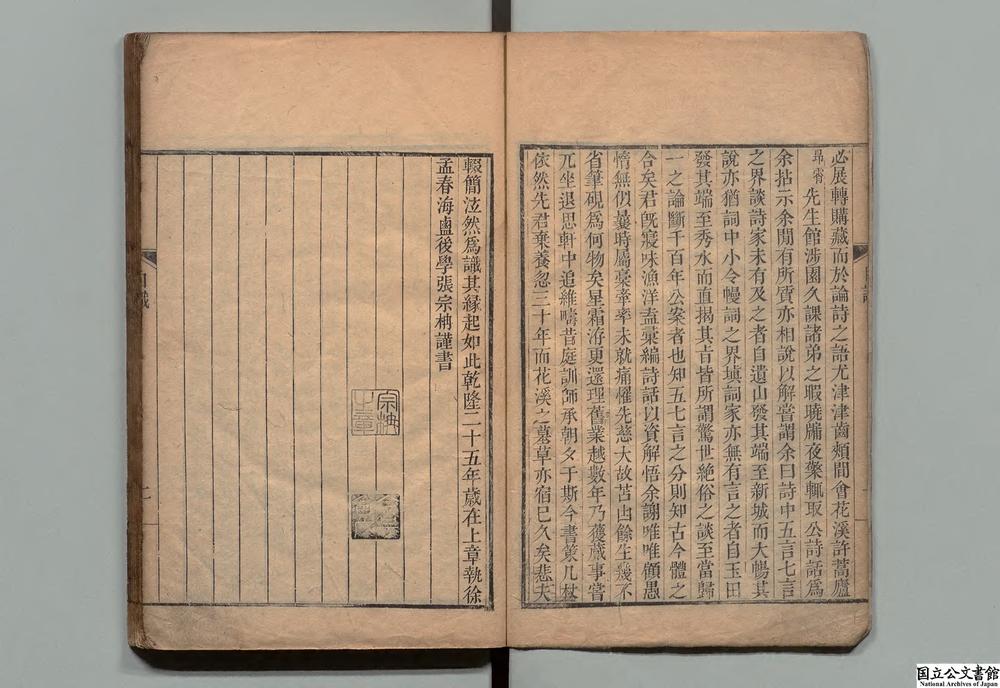 必展轉購藏而於論詩之語尤津津齒頰間會花溪許蒿廬
昻霄 先生館涉園久課諸弟之暇曉牕夜藥輒取公詩話爲
余拈示余間有所質亦相說以解嘗謂余曰詩中五言七言
之界談詩家未有及之者自遺山發其端至新城而大暢其
說亦猶詞中小令慢詞之界塡詞家亦無有言之者自玉田
發其端至秀水而直揭其㫖皆所謂驚世絶俗之談至當歸
一之論斷千百年公案者也知五七言之分則知古今體之
合矣君旣寢味漁洋盍彙編詩話以資解悟余謝唯唯顧愚
惰無似曩時屬稾牽率未就痛罹先慈大故苫凷餘生幾不
省筆硯爲何物矣星霜洊更還理舊業越數年乃獲蕆事嘗
兀坐退思軒中追維疇昔庭訓師承朝夕于斯今書策几杖
依然先君棄養忽三十年而花溪之墓草亦宿已久矣悲夫
輟簡泫然爲識其緣起如此乾隆二十五年歲在上章執徐
孟春海鹽後學張宗柟謹書
宗柟
之章
国立公文書館
National Archives of Japan